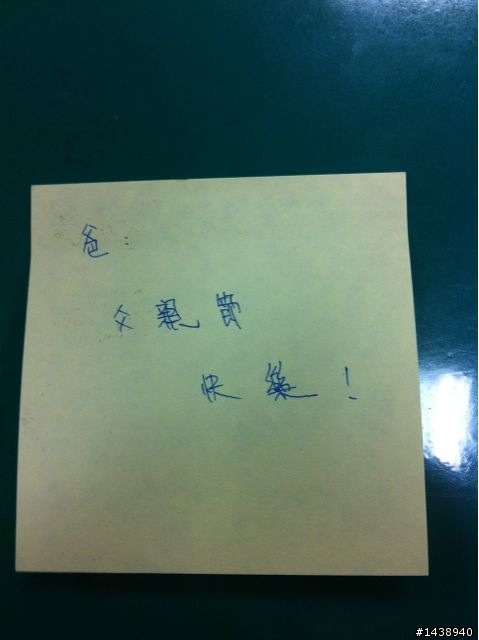 爸：
父親節
快樂！
#1438940